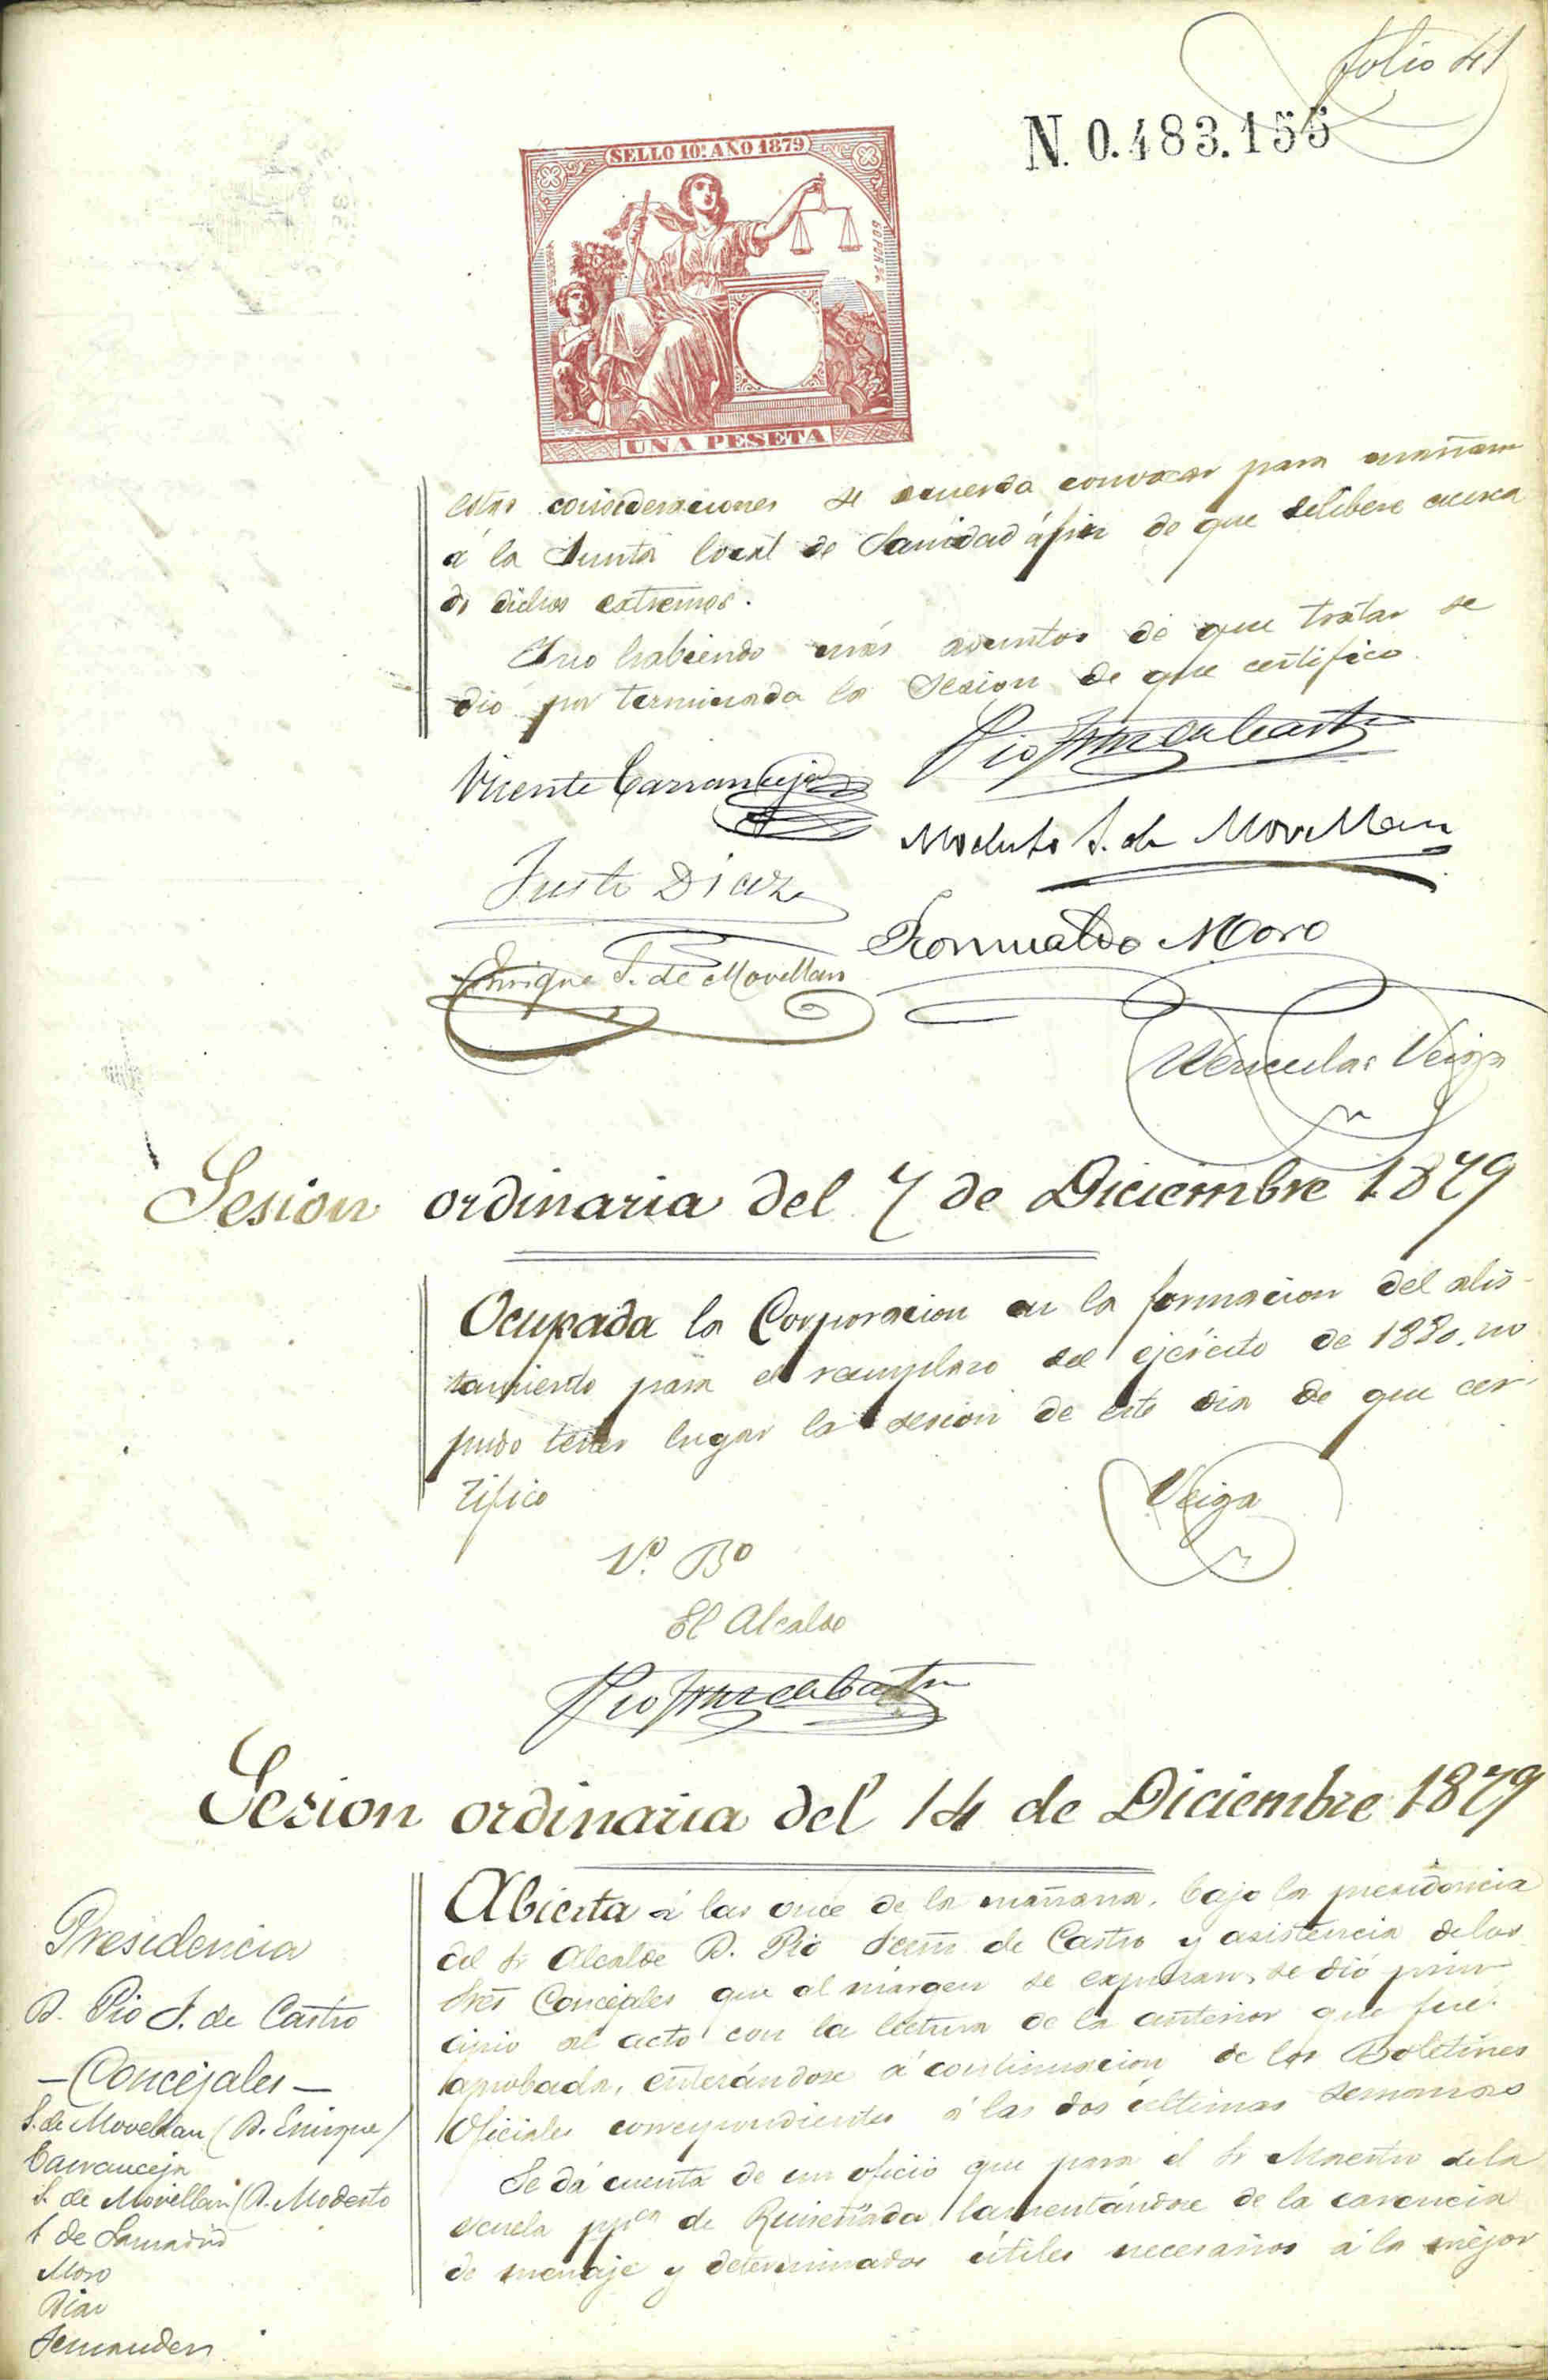 folio 41
N. 0.483.155
SELLO 10º AÑO 1879
UNA PESETA
estas consideraciones se acuerda convocar para mañana
á la Junta local de Sanidad á fin de que delibere acerca
de dichos extremos.
Y no habiendo más asuntos de que tratar se
dió por terminada la Sesion de que certifico.
Vicente Carranceja
Pio Frnz de Castro
Modesto S. de Movellan
Justo Diaz
Romualdo Moro
Enrique S. de Movellan
Wenceslao Veiga
Sesion ordinaria del 7 de Diciembre 1879
Ocupada la Corporacion en la formacion del alis-
tamiento para el reemplazo del ejército de 1880, no
pudo tener lugar la sesion de este dia de que cer-
tifico
Veiga
Vº Bº
El Alcalde
Pio Frnz de Castro
Sesion ordinaria del 14 de Diciembre 1879
Presidencia
D. Pio F. de Castro
- Concejales -
S. de Movellan (D. Enrique)
Carranceja
S. de Movellan (D. Modesto
de Lamadrid
Moro
Diaz
Fernandez
Abierta á las once de la mañana, bajo la presidencia
del Sr Alcalde D. Pio Fern de Castro y asistencia de los
Sres Concejales que al margen se expresan, se dió prin-
cipio al acto con la lectura de la anterior que fue
aprobada, enterándose á continuacion de los Boletines
Oficiales correspondientes á las dos últimas semanas
Se dá cuenta de un oficio que pasa el Sr Maestro de la
escuela ppca de Ruiseñada lamentándose de la carencia
de menaje y determinados útiles necesarios á la mejor